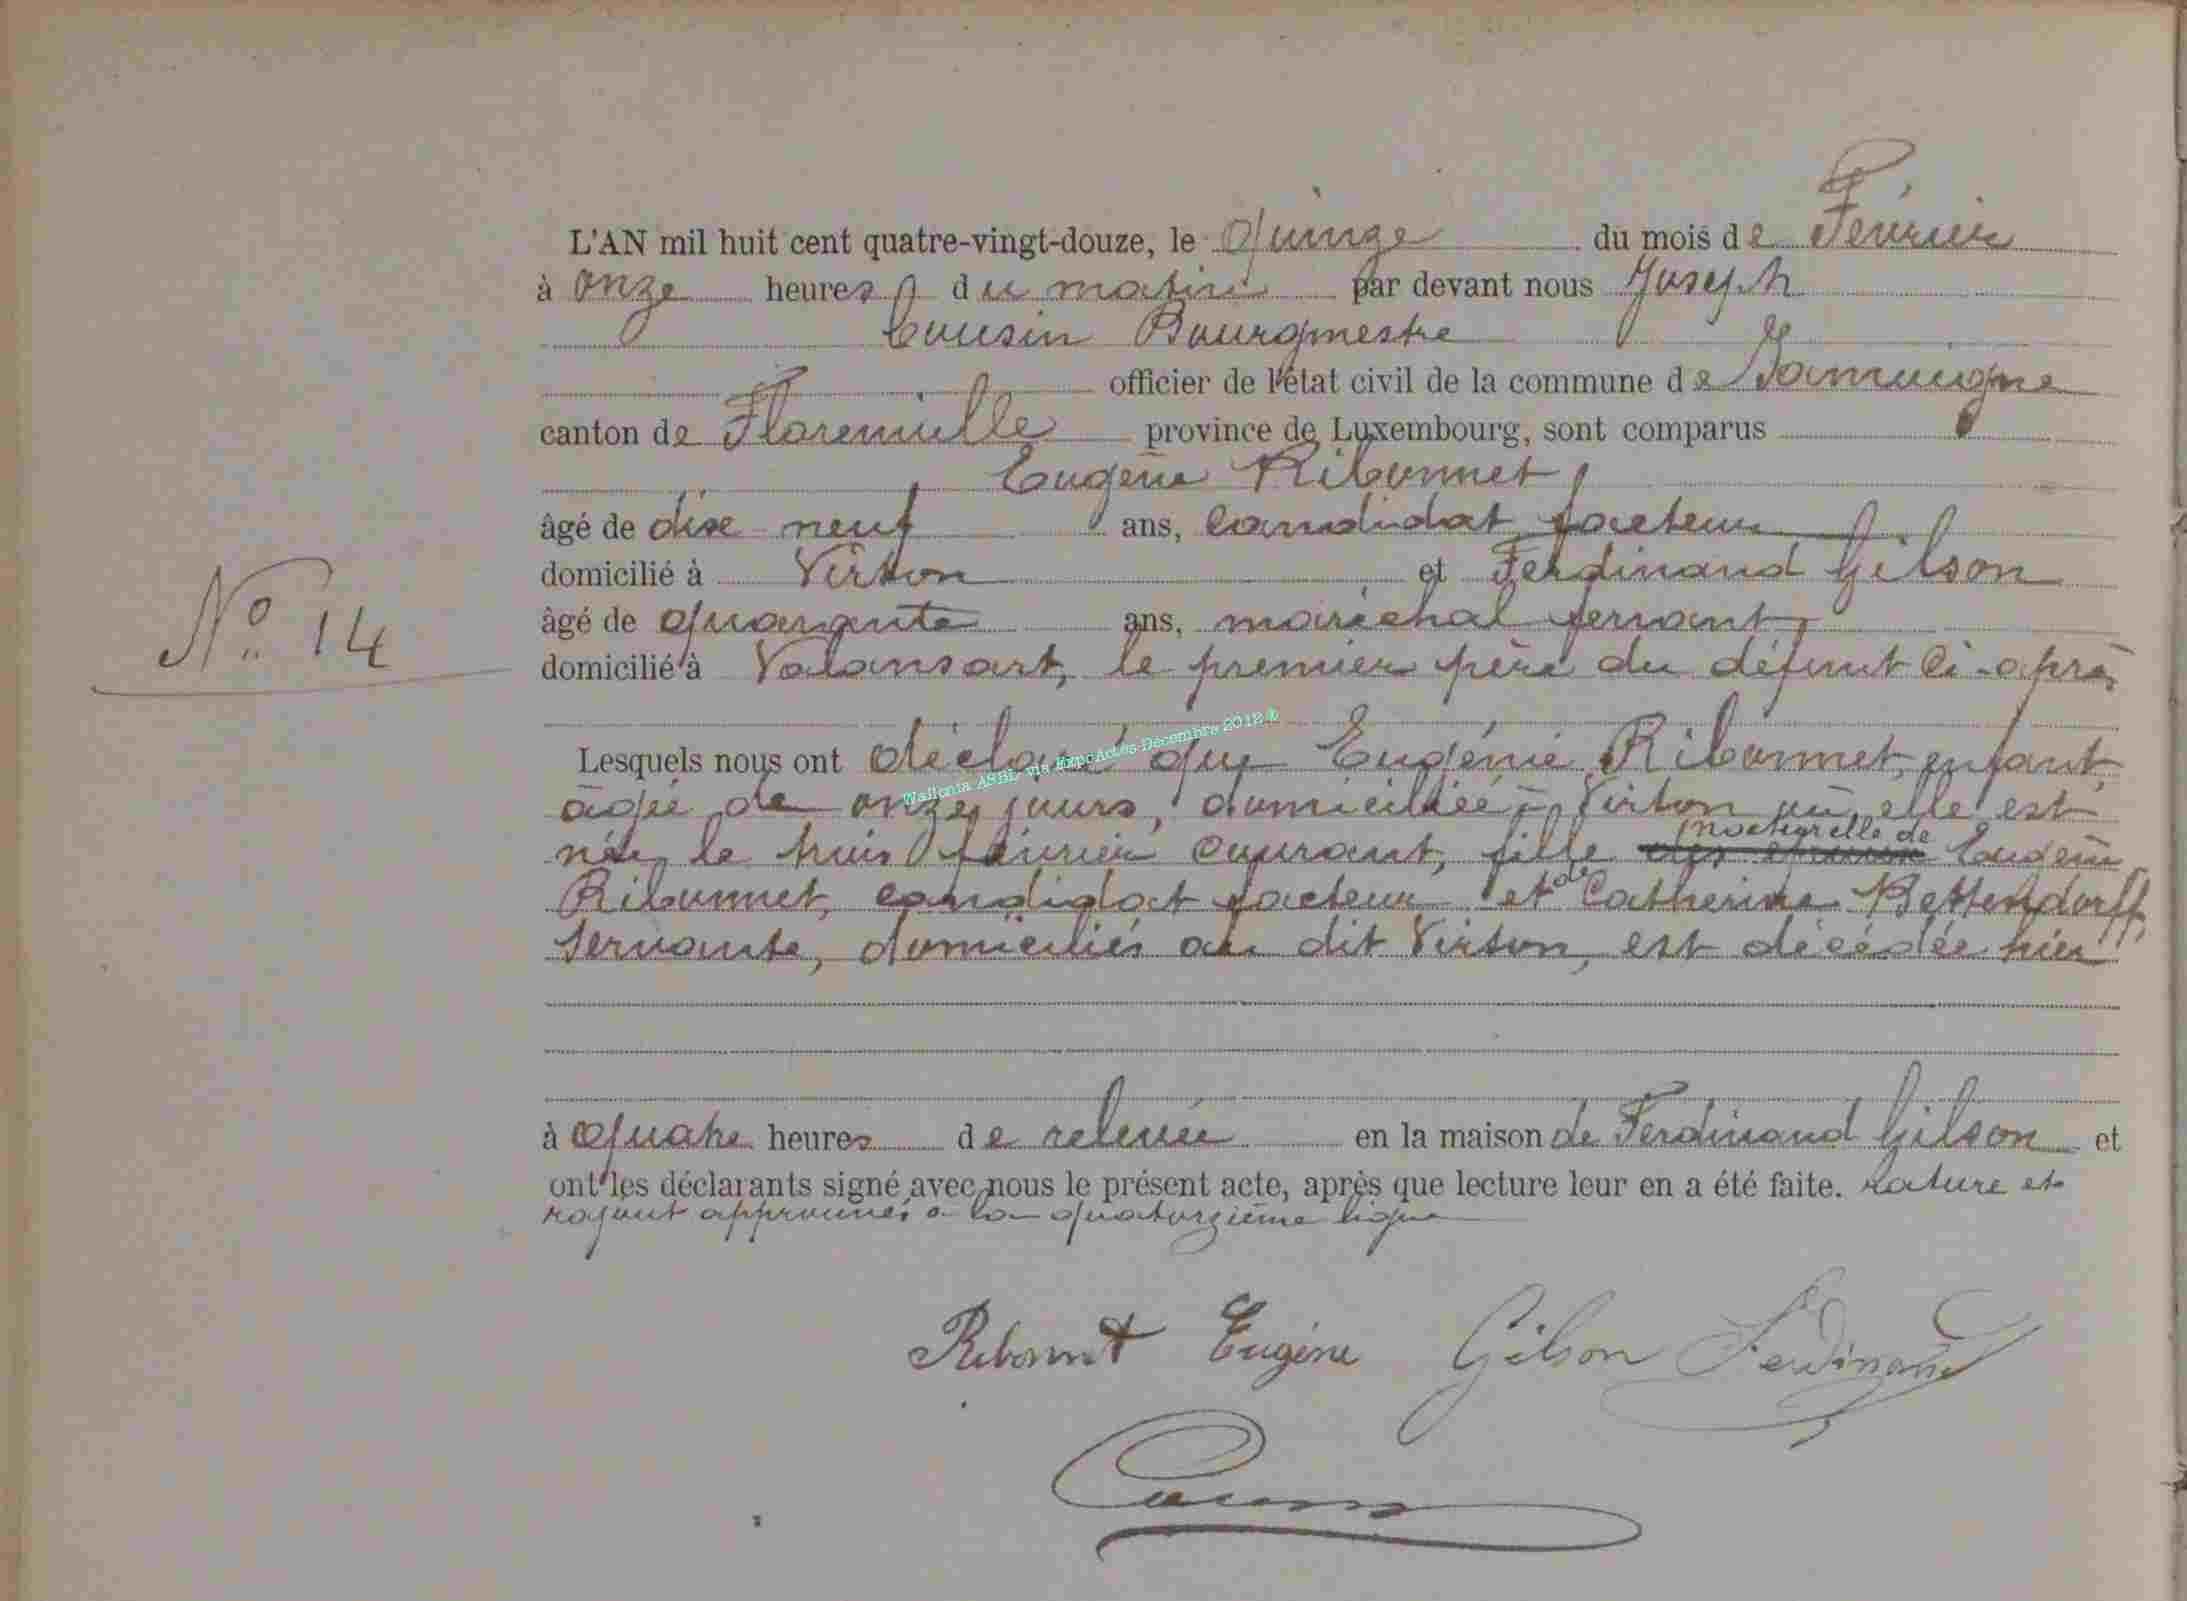 L'AN mil huit cent quatre-vingt-douze, le quinze du mois de Février
à onze heures du matin par devant nous Joseph
Cousin Bourgmestre
officier de l'état civil de la commune de Jamoigne
canton de Florenville province de Luxembourg, sont comparus
Eugène Ribonnet,
âgé de dix neuf ans, candidat facteur
domicilié à Virton et Ferdinand Gilson
N° 14
âgé de quarante ans, maréchal ferrant,
domicilié à Valansart, le premier père du défunt ci-après
Lesquels nous ont déclaré que Eugénie Ribonnet, enfant
Wallonia ASBL via ExpoActes Décembre 2012 ®
âgée de onze jours, domiciliée à Virton où elle est
née le trois février courant, fille naturelle de Eugène
Ribonnet, candidat facteur et de Catherine Bettendorff,
servante, domiciliés au dit Virton, est décédée hier
à quatre heures de relevée en la maison de Ferdinand Gilson et
ont les déclarants signé avec nous le présent acte, après que lecture leur en a été faite. Rature et
rajout approuvés à la quatorzième ligne
Ribonnet Eugène Gilson Ferdinand
Cousin